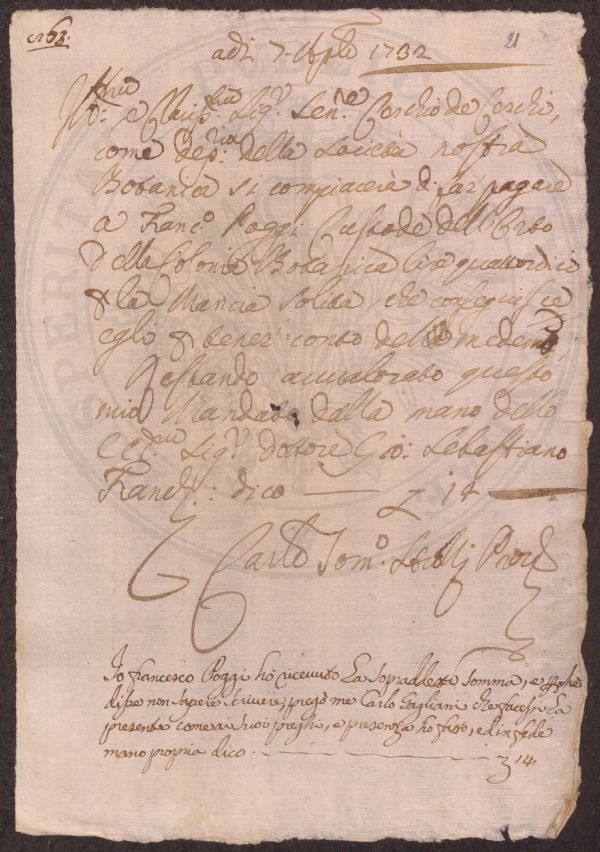 n.° 63. 21
adì 7 Ap.le 1732
Ill.mo e Claris.mo Sig.r Sen.re Cerchio de Cerchi,
come dep.rio della Società nostra
Botanica si compiacerà di far pagare
a Franc.o Poggi Custode dell'Orto
della Colonia Botanica lire quattordici
p la Mancia solita che conseguisce
egli p tener conto delle medeme,
Restando avvalorato questo
mio Mandato dalla mano dello
Ecc.mo Sig.r dottore Gio: Sebastiano
Franchi: dico £ 14
Carlo Tom.o
Io francesco Poggi ho ricevuto la sopraddetta somma, e
disse non sapere scrivere, pregò me Carlo Gagliani che facessi la
presente come ai suoi preghi, e presenza ho fatto, ed in fede
mano propria dico £ 14